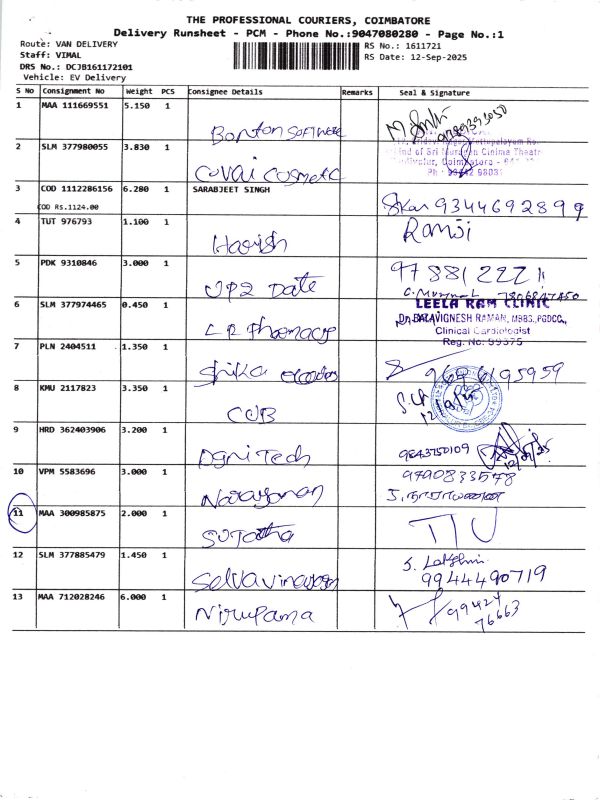 THE PROFESSIONAL COURIERS, COIMBATORE
Delivery Runsheet - PCM - Phone No.:9047080280 - Page No.:1
Route: VAN DELIVERY
Staff: VIMAL
DRS No.: DCJB161172101
Vehicle: EV Delivery
RS No.: 1611721
RS Date: 12-Sep-2025
S No Consignment No Weight PCS Consignee Details Remarks Seal & Signature
1 MAA 111669551 5.150 1
Bonton Software
2 SLM 377980055 3.830 1
Covai Cosmetic
3 COD 1112286156 6.280 1 SARABJEET SINGH
COD RS.1124.00
9344692899
4 TUT 976793 1.100 1
Harish
Ramji
5 PDK 9310846 3.000 1
UP2 Date
6 SLM 377974465 0.450 1
LR Pharmacy
LEELA RAM CLINIC
Dr. BALAVIGNESH RAMAN, MBBS.,PGDCC.,
Clinical Cardiologist
Reg. No: 99375
7 PLN 2404511 1.350 1
Shika
8 KMU 2117823 3.350 1
CUB
9 HRD 362403906 3.200 1
Agni Tech
9843750109
10 VPM 5583696 3.000 1
Narayanan
9790833578
11 MAA 300985875 2.000 1
Sujatha
12 SLM 377885479 1.450 1
Selvavinayagam
S. Lakshmi
9944490719
13 MAA 712028246 6.000 1
Nirupama
99424
76663